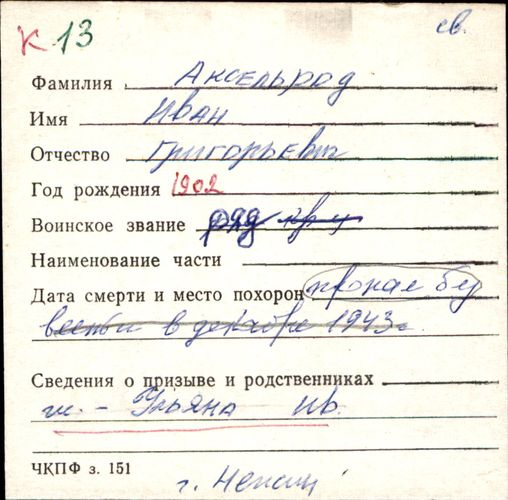 К 13
св.
Фамилия Аксельрод
Имя Иван
Отчество Григорьевич
Год рождения 1902
Воинское звание ряд
Наименование части
Дата смерти и место похорон пропал без
вести в декабре 1943 г
Сведения о призыве и родственниках
ж. - Ульяна Ив.
ЧКПФ з. 151
г. Нежин